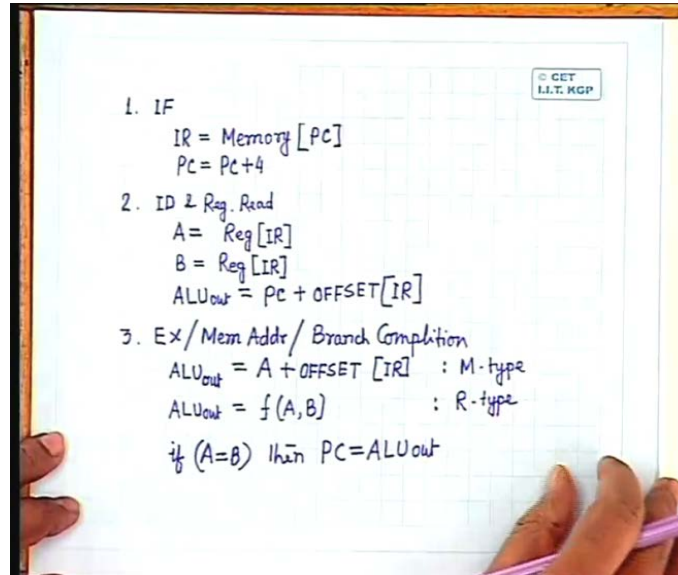 © CET
I.I.T. KGP
1. IF
IR = Memory [PC]
PC = PC+4
2. ID & Reg. Read
A = Reg [IR]
B = Reg [IR]
ALUout = PC + OFFSET[IR]
3. Ex/Mem Addr/Branch Complition
ALUout = A + OFFSET [IR] : M-type
ALUout = f (A,B] : R-type
if (A=B) then PC=ALUout